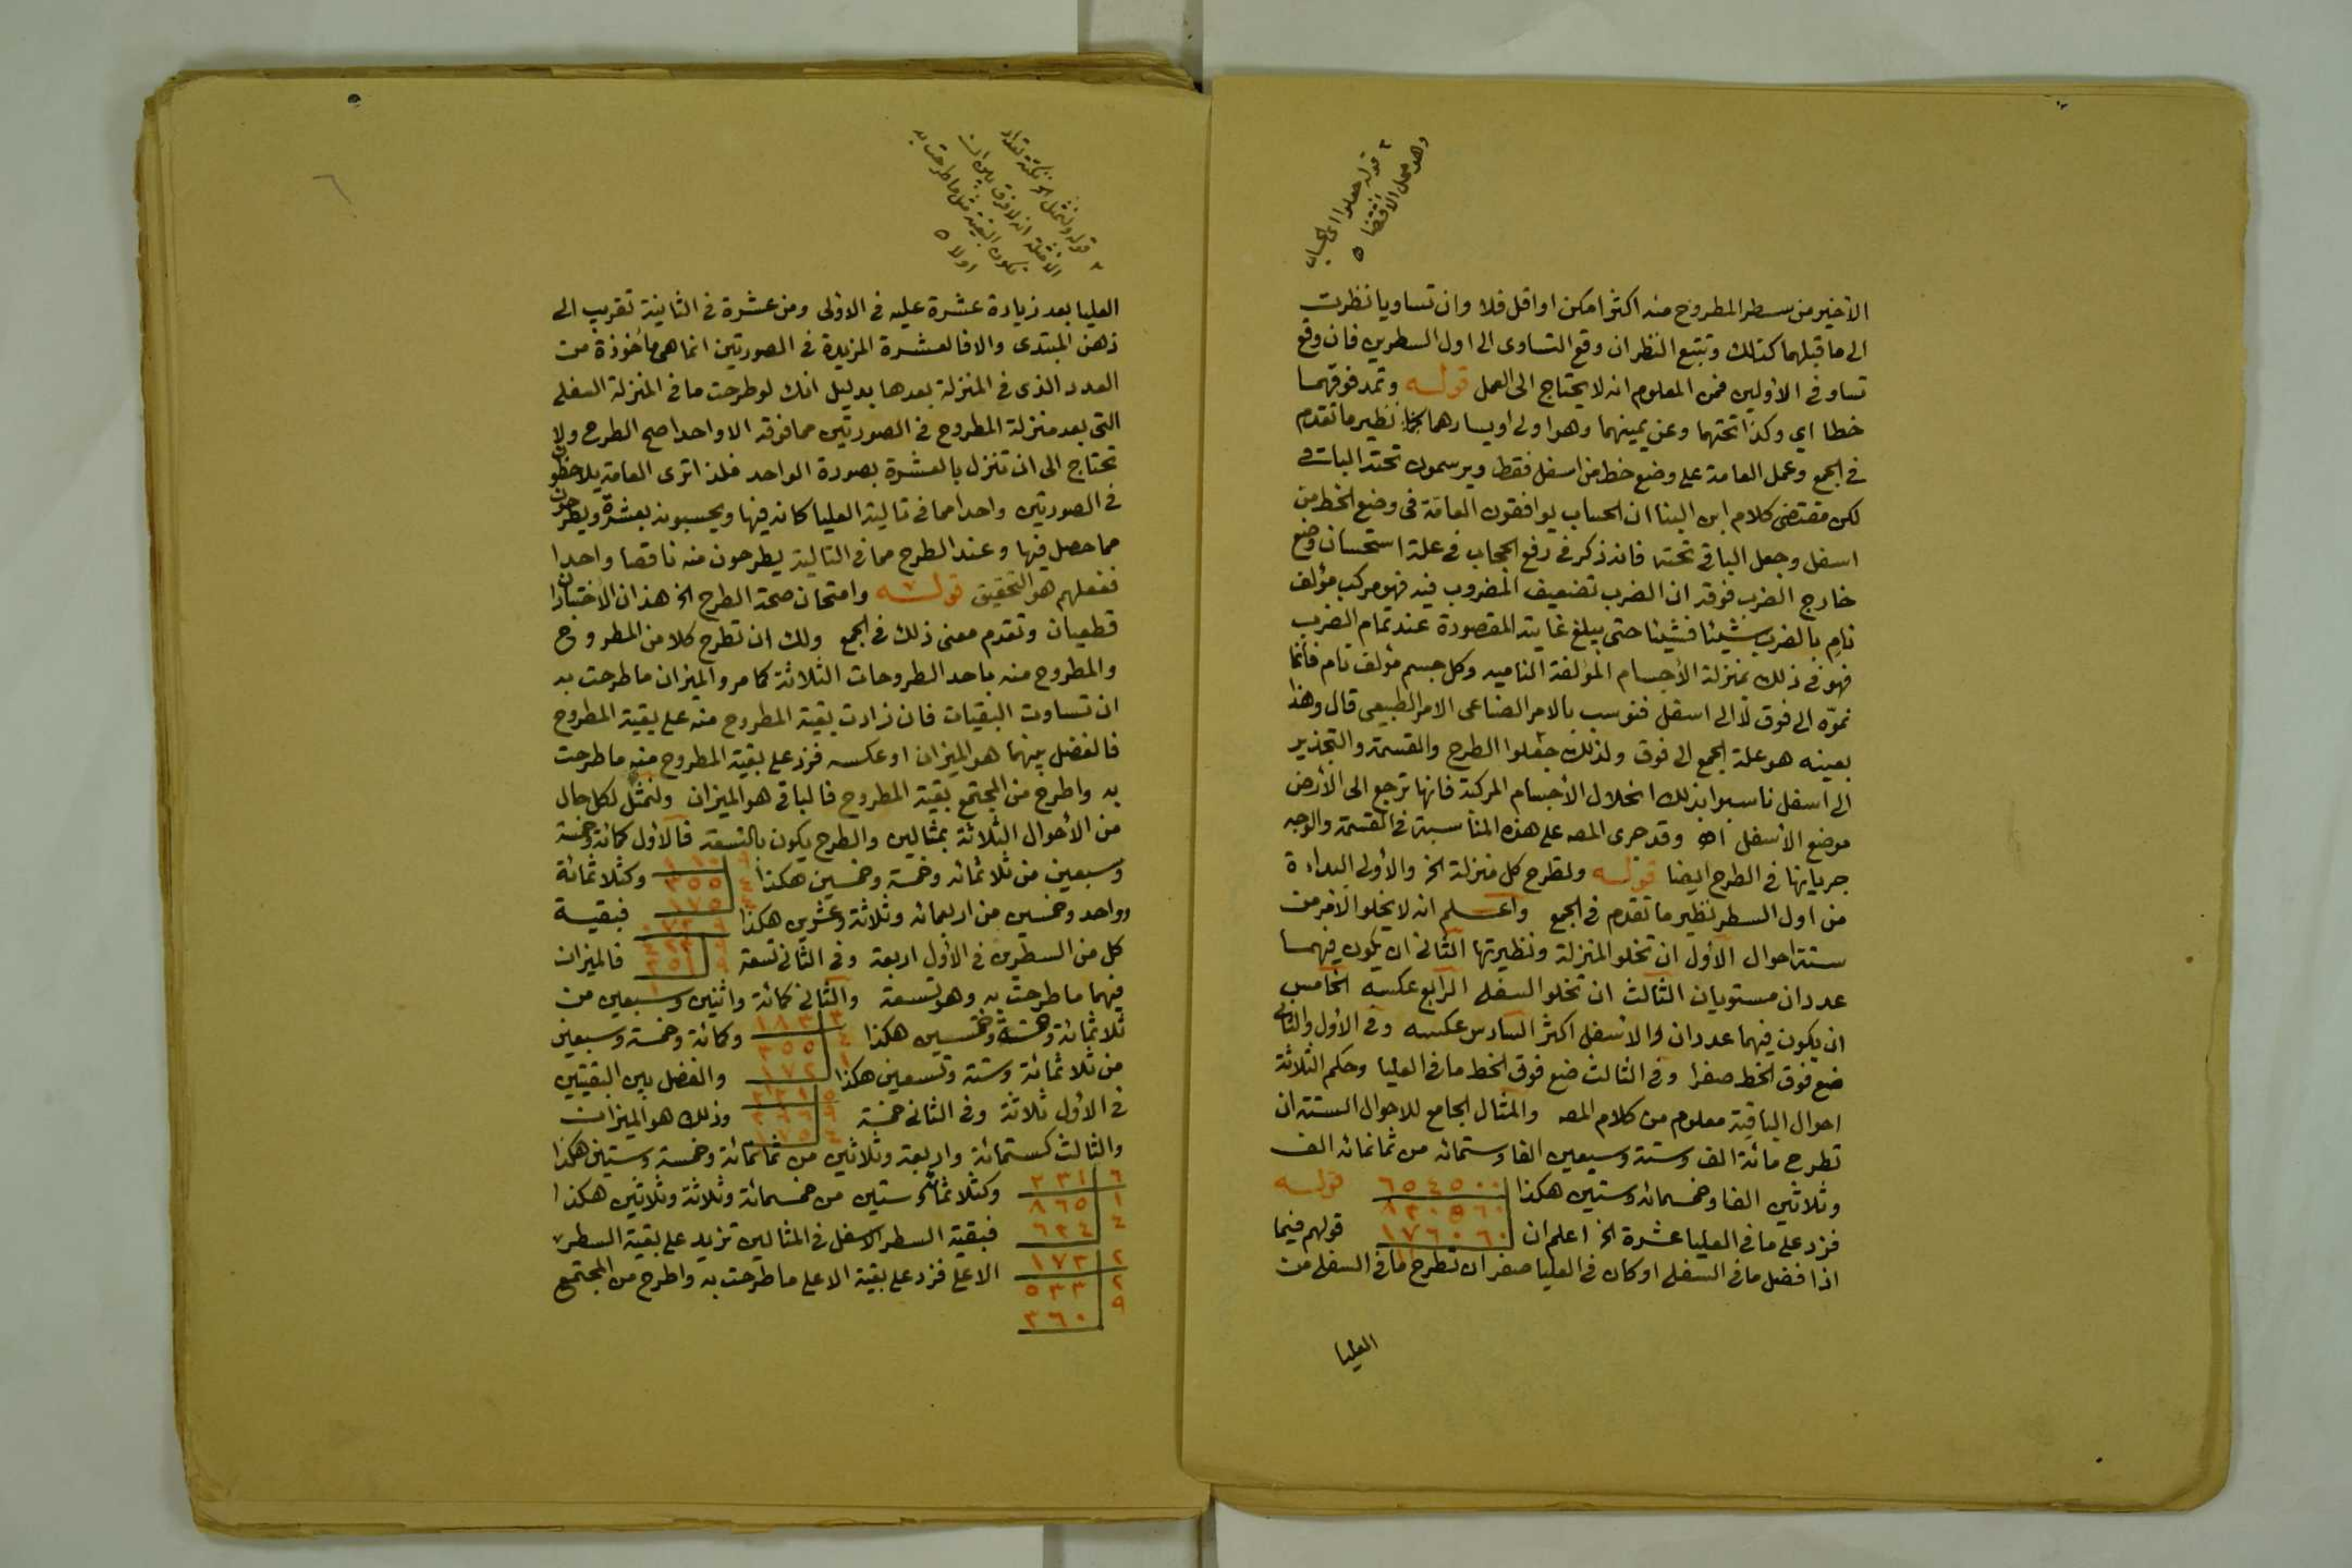 ٢ قوله جعلوا اى الحساب
وهو محل الاقتضا ٥
الأخير من سطر المطروح منه اكثر امكن او اقل فلا وان تساويا نظرت
الى ما قبلهما كذلك وتتبع النظر ان وقع التساوى الى اول السطرين فان وقع
تساو فى الأولين فمن المعلوم انه لا يحتاج الى العمل قوله وتمد فوقهما
خطا اي وكذا تحتهما وعن يمينهما وهو اولى او يسارهما نظير ما تقدم
فى الجمع وعمل العامة على وضع خط من اسفل فقط ويرسمون تحته الباقى
لكن مقتضى كلام ابن البنا ان الحساب يوافقون العامة فى وضع الخط من
اسفل وجعل الباقى تحته فانه ذكر فى رفع الحجاب فى علة استحسان وضع
خارج الضرب فوقه ان الضرب تضعيف المضروب فيه فهو مركب مؤلف
نامٍ بالضرب شيئا فشيئا حتى يبلغ غايته المقصودة عند تمام الضرب
فهو فى ذلك بمنزلة الأجسام المؤلفة الناميه وكل جسم مؤلف نام فانما
نموّه الى فوق لا الى اسفل فنوسب بالامر الصناعى الامر الطبيعى قال وهذا
بعينه هو علة الجمع الى فوق ولذلك جعلوا الطرح والقسمة والتجذير
الى اسفل ناسبوا بذلك انحلال الأجسام المركبة فانها ترجع الى الأرض
موضع الأسفل اهـ وقد جرى المصـ على هذه المناسبة فى القسمة والوجه
جريانها فى الطرح ايضا قوله ولتطرح كل منزلة الخ والأولى البداءة
من اول السطر نظير ما تقدم فى الجمع واعلم انه لا يخلو الأمر من
ستة احوال الأول ان تخلو المنزلة ونظيرتها الثانى ان يكون فيهما
عددان مستويان الثالث ان تخلو السفلى الرابع عكسه الخامس
ان يكون فيهما عددان والاسفل اكثر السادس عكسه وفى الأول والثانى
ضع فوق الخط صفرا وفى الثالث ضع فوق الخط ما فى العليا وحكم الثلاثة
احوال الباقية معلوم من كلام المصـ والمثال الجامع للاحوال الستة ان
تطرح مائة الف وستة وسبعين الفا وستمائه من ثمانمائه الف
وثلاثين الفا وخمسمائه وستين هكذا ٦٥٤٥٠٠ قوله
٨٣٠٥٦٠
فزد على ما فى العليا عشرة الخ اعلم ان ١٧٦٠٦٠ قولهم فيما
اذا فضل ما فى السفلى او كان فى العليا صفر ان تطرح ما فى السفلى من
العليا
٢ قوله ولنمثل الخ نكتة تعداد
الأمثلة انه لا فرق بين ان
تكون البقية مثل ما طرحت به
اولا ٥
العليا بعد زيادة عشرة عليه فى الاولى ومن عشرة فى الثانية تقريب الى
ذهن المبتدى والا فالعشرة المزيدة فى الصورتين انما هى مأخوذة من
العدد الذى فى المنزلة بعدها بدليل انك لو طرحت ما فى المنزلة السفلى
التى بعد منزلة المطروح فى الصورتين مما فوقه الا واحدا صح الطرح ولا
تحتاج الى ان تنزل بالعشرة بصورة الواحد فلذا ترى العامة يلاحظون
فى الصورتين واحدا مما فى تالية العليا كانه فيها ويحسبونه بعشرة ويطرحون
مما حصل فيها وعند الطرح مما فى التالية يطرحون منه ناقصا واحدا
ففعلهم هو التحقيق قوله وامتحان صحة الطرح الخ هذان الأختباران
قطعيان وتقدم معنى ذلك فى الجمع ولك ان تطرح كلا من المطروح
والمطروح منه باحد الطروحات الثلاثة كما مر والميزان ما طرحت به
ان تساوت البقيات فان زادت بقية المطروح منه على بقية المطروح
فالفضل بينهما هو الميزان او عكسه فزد على بقية المطروح منه ما طرحت
به واطرح من المجتمع بقية المطروح فالباقى هو الميزان ولنمثل لكل حال
من الأحوال الثلاثة بمثالين والطرح يكون بالتسعة فالأول كمائة وخمسة
وسبعين من ثلاثمائه وخمسة وخمسين هكذا ٣٥٥ ٤ وكثلاثمائة
١٧٥ ٤
وواحد وخمسين من اربعمائه وثلاثة وعشرين هكذا فبقية
كل من السطرين فى الأول اربعة وفى الثانى تسعة ٣٥١ ٩ فالميزان
فيهما ما طرحت به وهو تسعة والثانى كمائة واثنين وسبعين من
١٨٣ ٣
ثلاثمائة وخمسة وخمسين هكذا ٣٥٥ ٤ وكمائة وخمسة وسبعين
١٧٢ ١
من ثلاثمائة وستة وتسعين هكذا والفضل بين البقيتين
٢٢١ ٥
فى الأول ثلاثة وفى الثانى خمسة ٣٩٦ ٩ وذلك هو الميزان
١٧٥ ٤
والثالث كستمائة واربعة وثلاثين من ثمانمائة وخمسة وستين هكذا
٢٣١ ٦
وكثلاثمائة وستين من خمسمائة وثلاثة وثلاثين هكذا
٨٦٥ ١
٦٣٤ ٤
فبقية السطر الاسفل فى المثالين تزيد على بقية السطر
١٧٣ ٢
الاعلى فزد على بقية الاعلى ما طرحت به واطرح من المجتمع
٥٣٣ ٢
٣٦٠ ٩